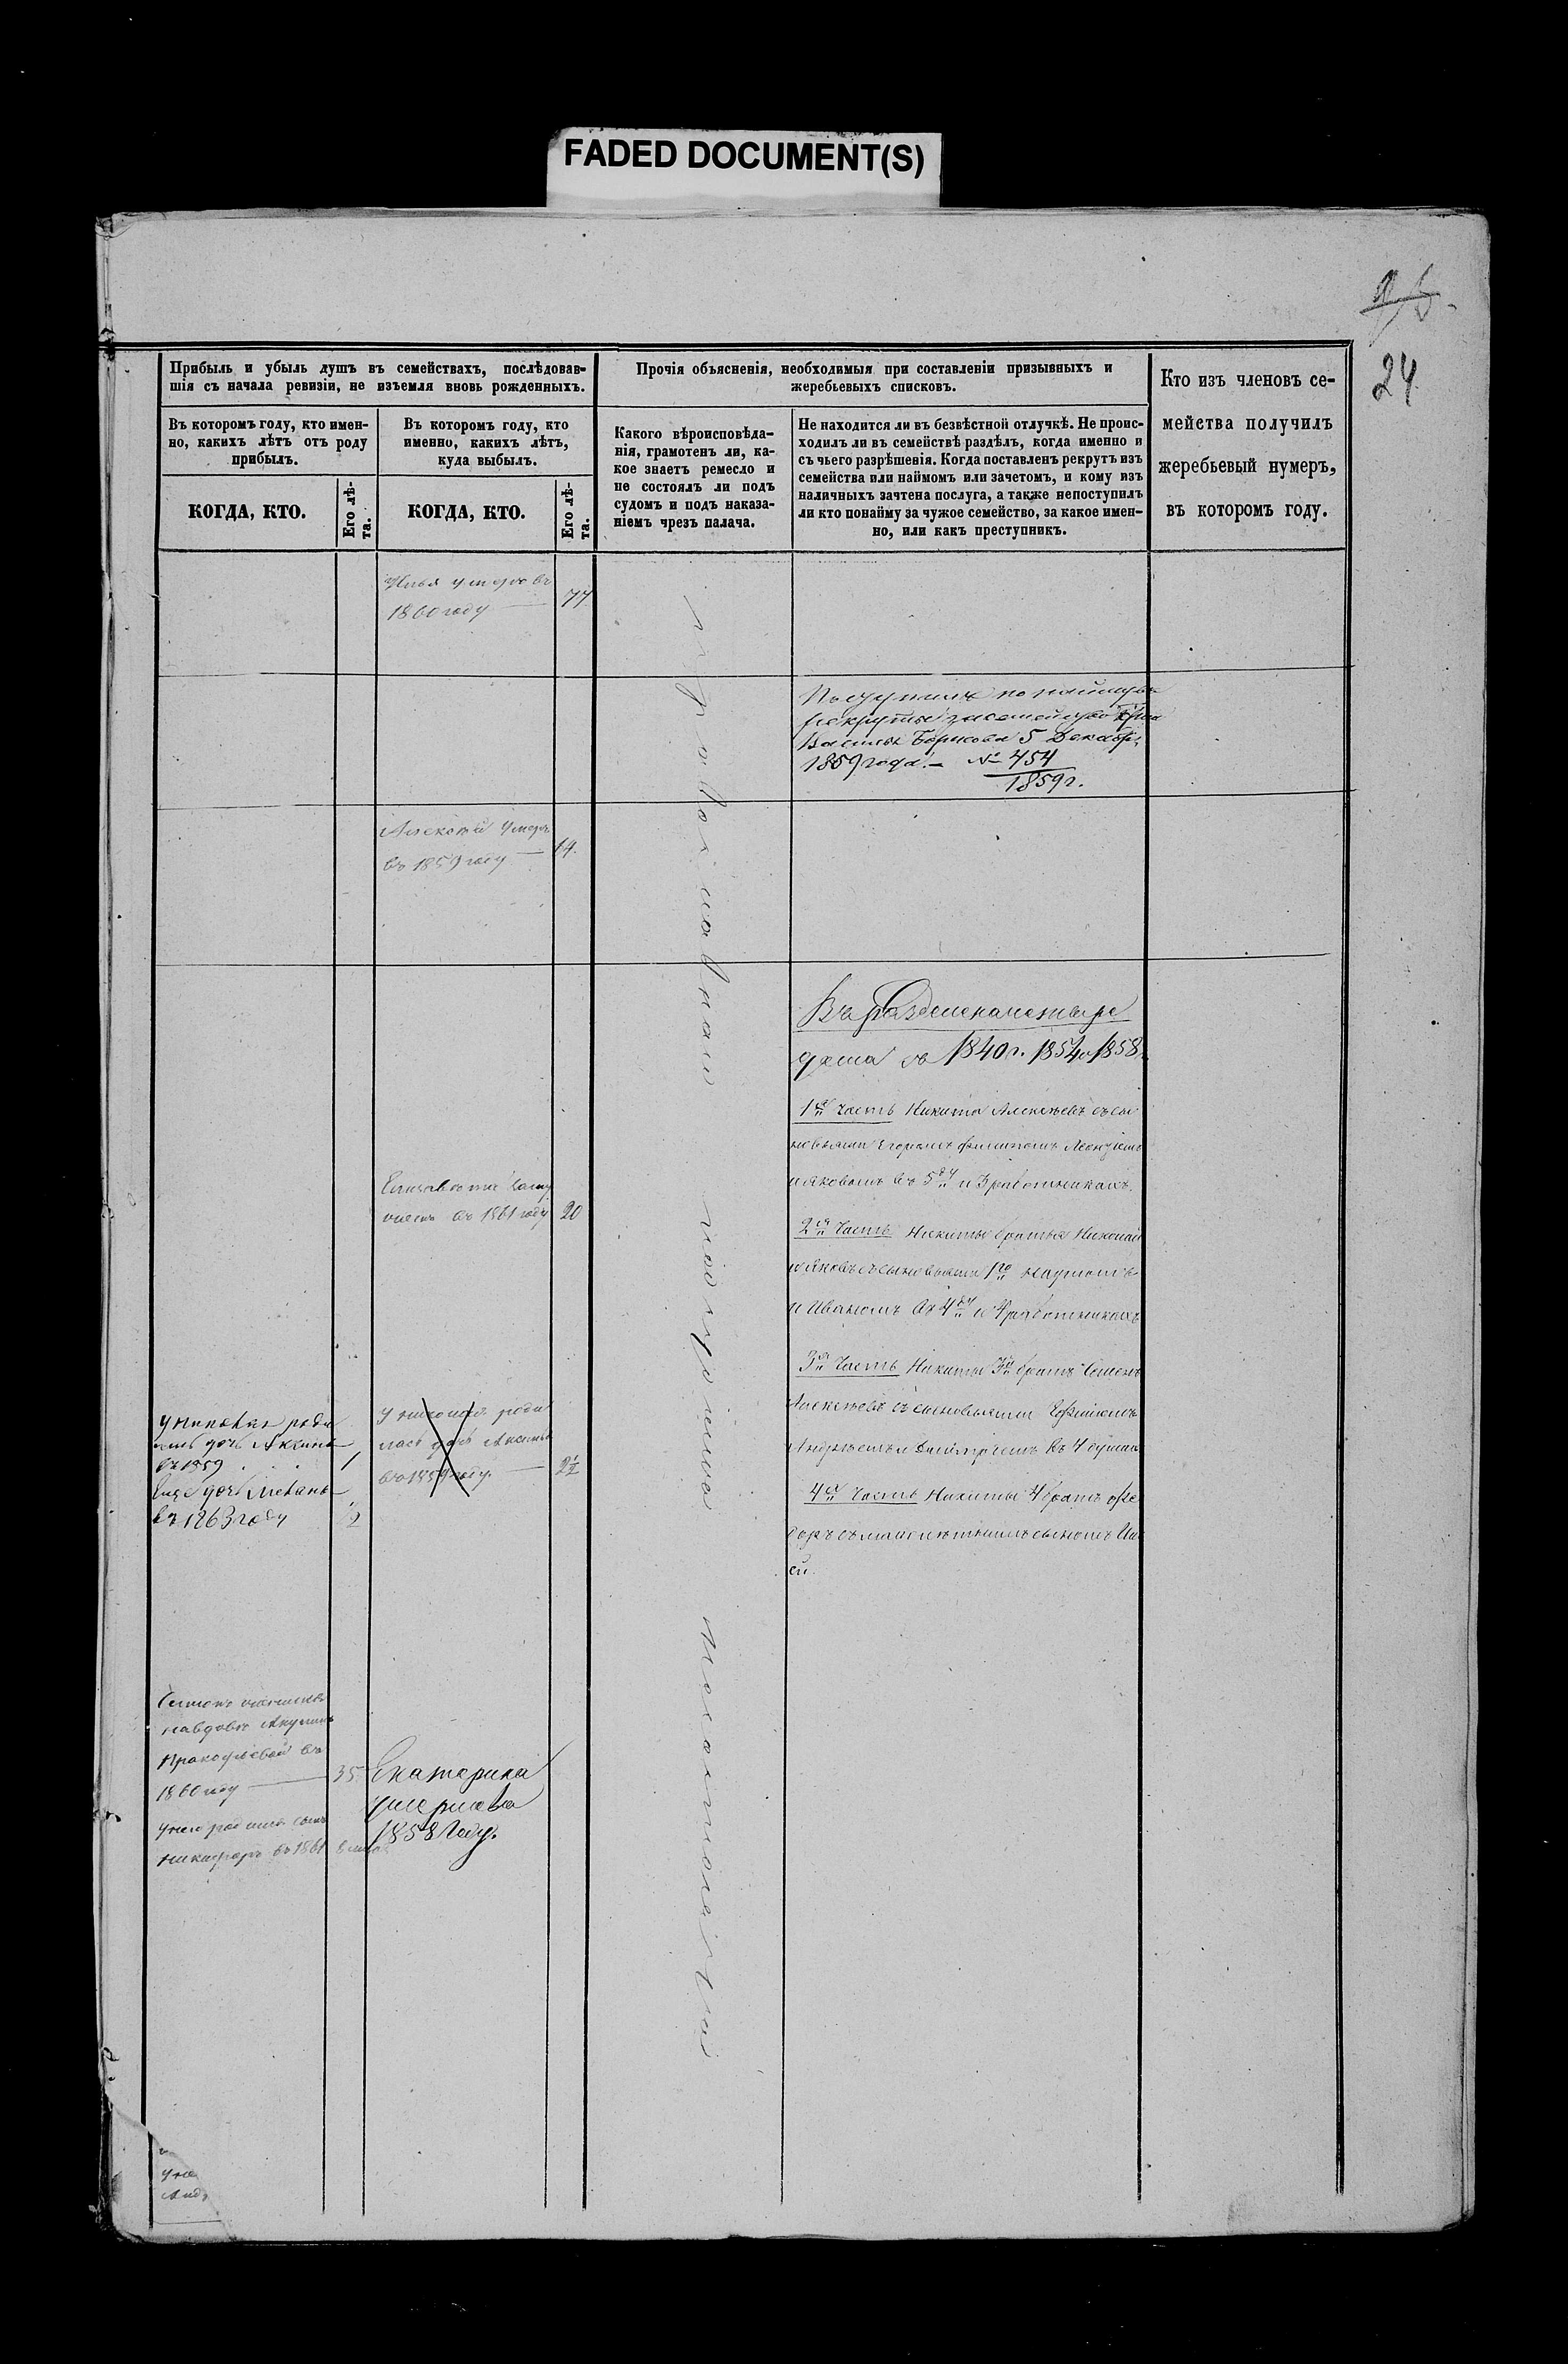 FADED DOCUMENT(S)
24
Прибыль и убыль душъ въ семействахъ, послѣдовав-
шія съ начала ревизіи, не изъемля вновь рожденныхъ.
Въ которомъ году, кто имен-
но, какихъ лѣтъ отъ роду
прибылъ.
КОГДА, КТО.
Его лѣ-
та.
Въ которомъ году, кто
именно, какихъ лѣтъ,
куда выбылъ.
КОГДА, КТО.
Его лѣ-
та.
Прочія объясненія, необходимыя при составленіи призывныхъ и
жеребьевыхъ списковъ.
Какого вѣроисповѣда-
нія, грамотенъ ли, ка-
кое знаетъ ремесло и
не состоялъ ли подъ
судомъ и подъ наказа-
ніемъ чрезъ палача.
Не находится ли въ безвѣстной отлучкѣ. Не проис-
ходилъ ли въ семействѣ раздѣлъ, когда именно и
съ чьего разрѣшенія. Когда поставленъ рекрутъ изъ
семейства или наймомъ или зачетомъ, и кому изъ
наличныхъ зачтена послуга, а также непоступилъ
ли кто понайму за чужое семейство, за какое имен-
но, или какъ преступникъ.
Кто изъ членовъ се-
мейства получилъ
жеребьевый нумеръ,
въ которомъ году.
Илья умеръ въ
1860 году 77
Поступилъ по найму въ
рекруты за семейство
Василья Борисова 5 Декабря
1859 года. — № 454
1859 г.
Алексѣй умеръ
въ 1859 году — 14.
православнаго
въ 1840 г. 1854 и 1858
1я часть Никита Алексѣевъ съ сы
новьями Егоромъ Филипомъ Леонтіемъ
и Яковомъ въ 5 и 3 работникахъ.
Елизавета замуж
въ 1861 году 20
2я часть Никиты братья Николай
и Яковъ съ сыновьями 1го Наумомъ
и Иваномъ въ 4 и 4 работникахъ
3я часть Никиты 3й братъ Семенъ
Алексѣевъ съ сыновьями Ефимомъ
Андреемъ и Дмитріемъ въ 4 душахъ
4я часть Никиты 4 братъ Фе
доръ съ малолѣтнимъ сыномъ
у Николая роди
лась дочь Аксинья
въ 1859 1
Еще дочь
въ 1863 году 1/2
у Николая роди
лась дочь Аксинья
въ 1859 году. — 2 1/2
Семенъ женился
на вдовѣ Акулинѣ
Прокофьевой въ
1860 году — 35
у него родился сынъ
Никифоръ въ 1861
Екатерина
умерла въ
1858 году.